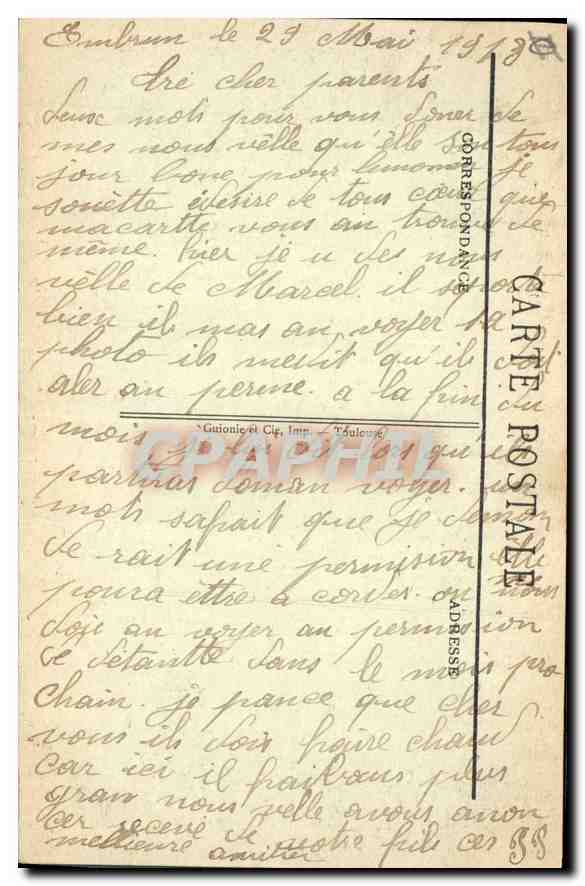 Embrun le 29 Mai 1918
tré cher parents
deux mots pour vous doner de
mes nous vèlle qu'elle son tous
jour bone pour lemoment je
souètte édésire de tous cœur que
macartte vous au trouve de
même. hier je u des nous
vèlle de Marcel. il se porte
bien il mas an voyer sa
photo ils medit qu'ils doit
aler an perme. a la fin du
mois
partiras doman voyer. un
mots safait que je
de rait une permision elle
poura ettre a corder. on nous
dois an voyer an permission
de détantte dans le mois pro
chain. je pance que cher
vous ils dois faire chaud
car ici il fait bans plus
gran nous velle a vous anon
cer recevé de votre fils ces
meilleure amitier
CORRESPONDANCE
CARTE POSTALE
ADRESSE
Guionie et Cie, Imp. Toulouse
CPAPHIL